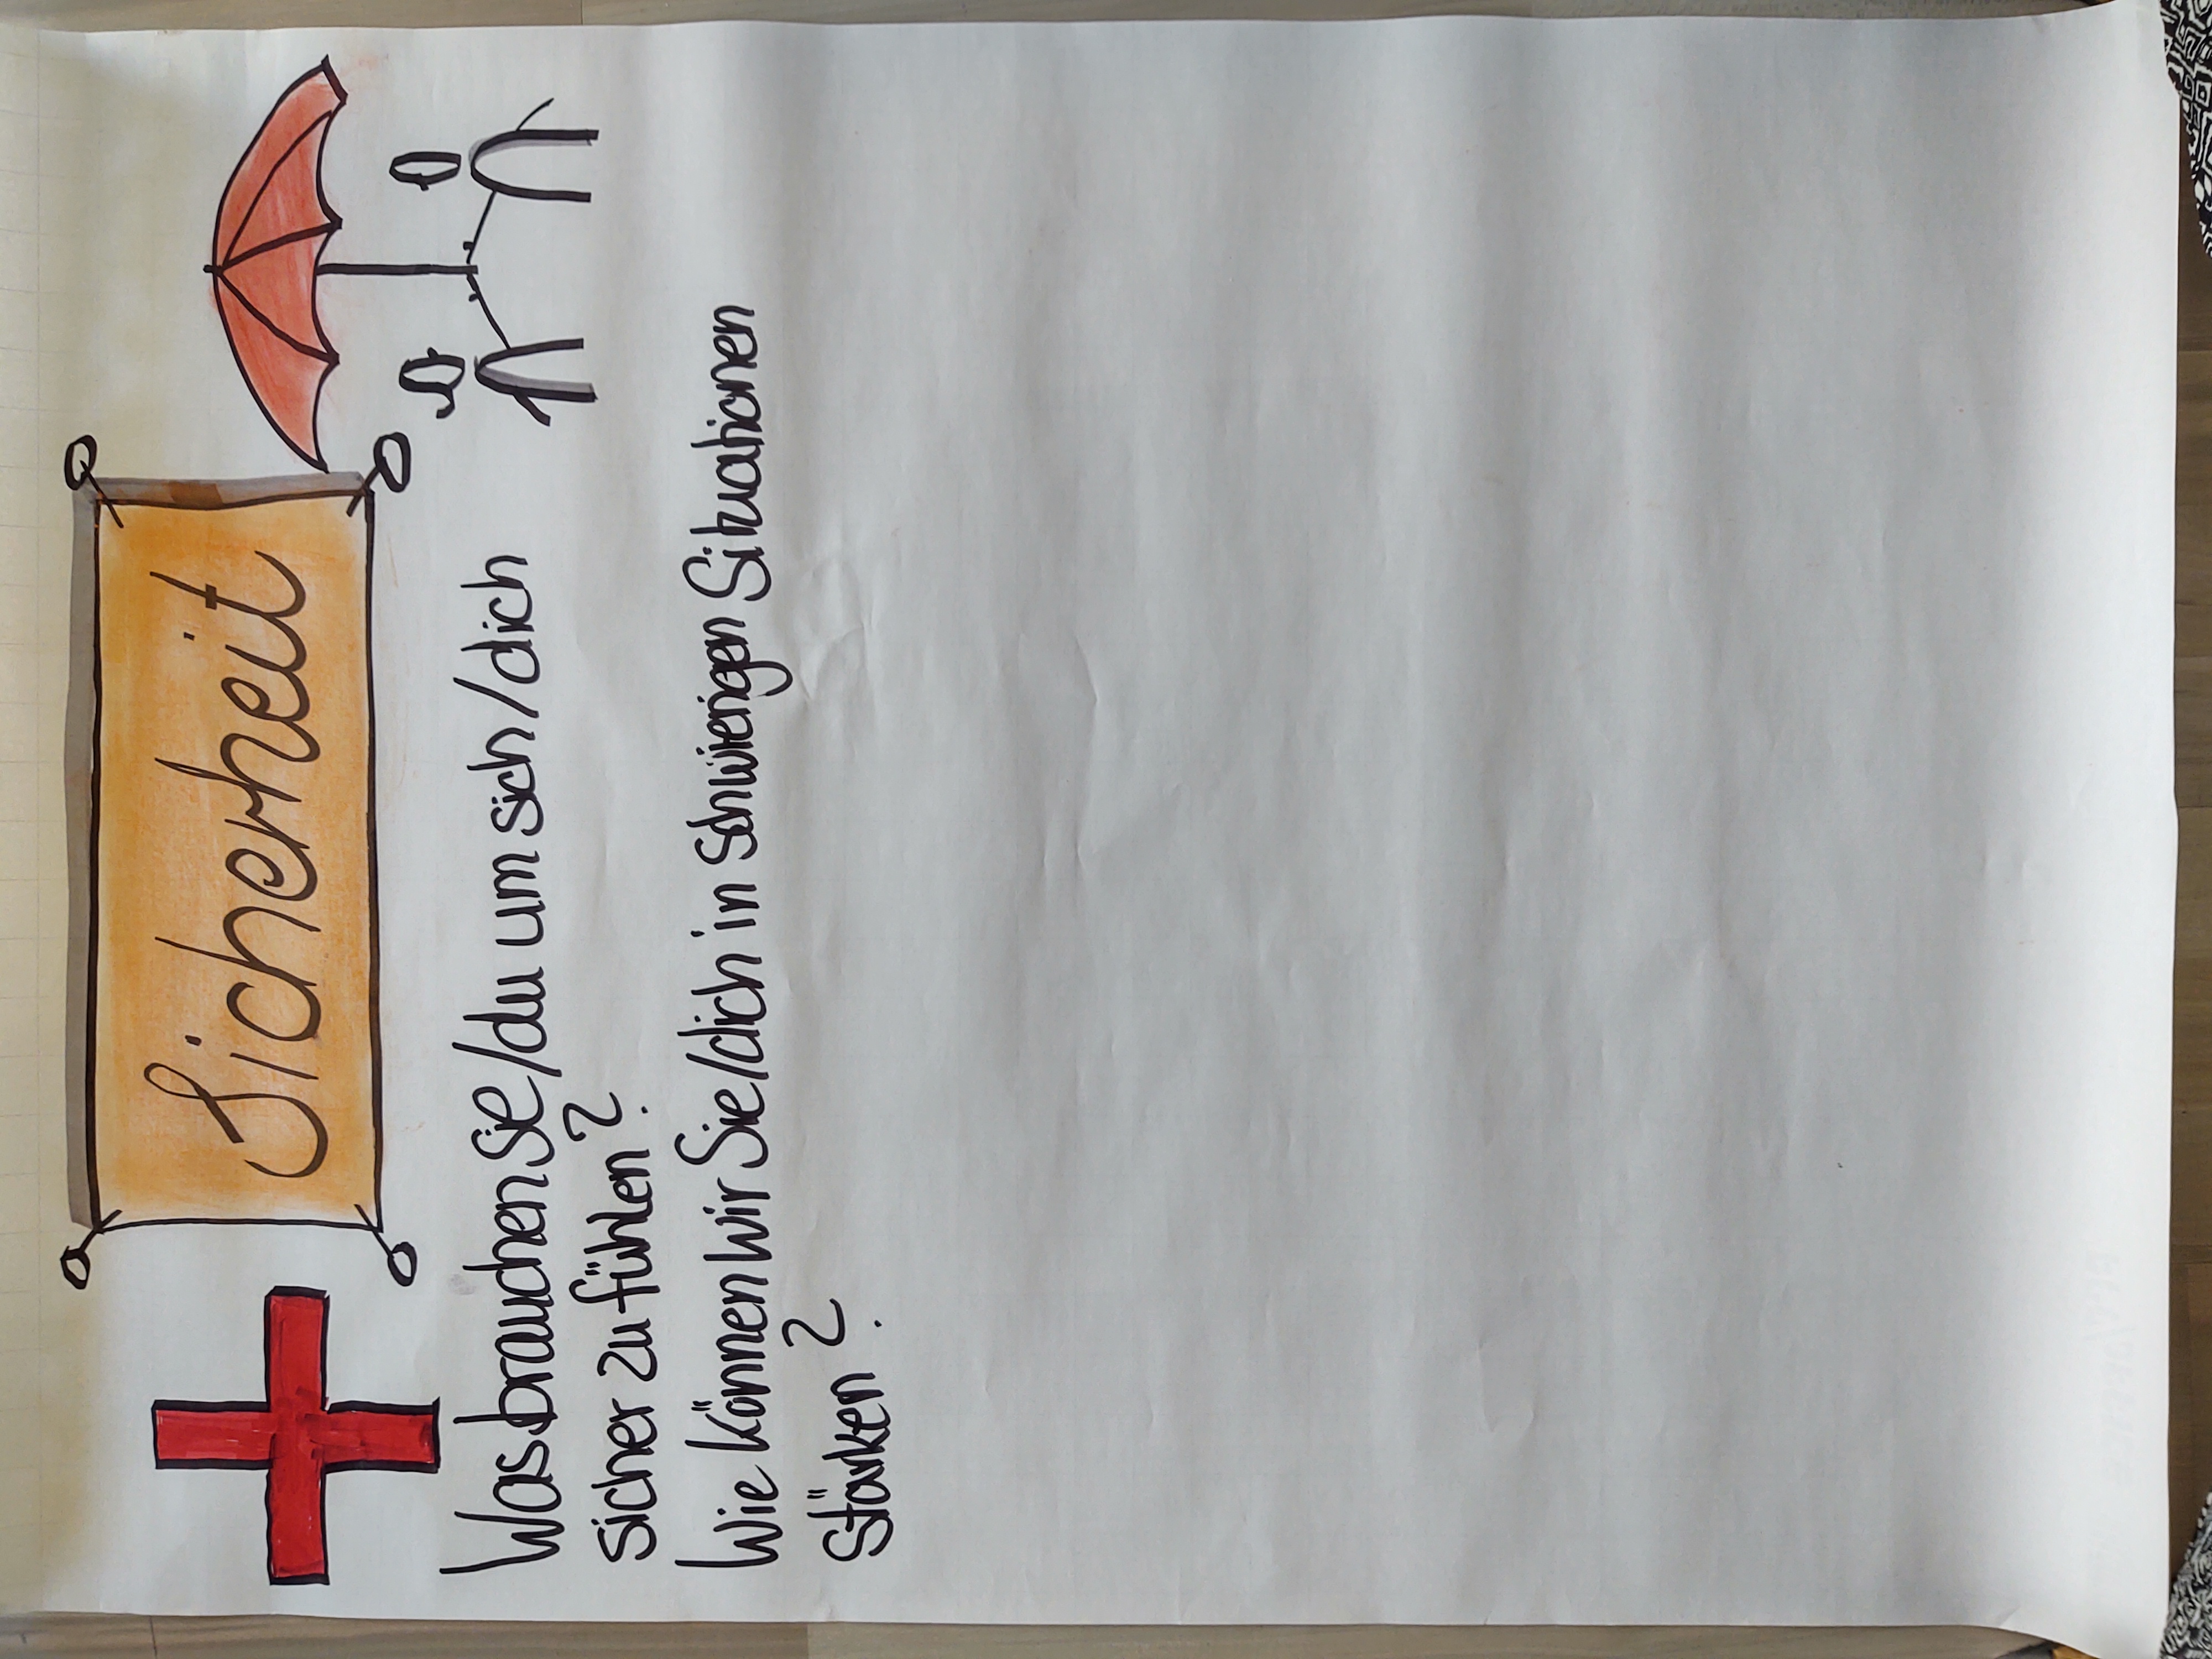 Sicherheit
Was brauchen Sie/du um sich/dich
sicher zu fühlen?
Wie können wir Sie/dich in schwierigen Situationen
stärken?